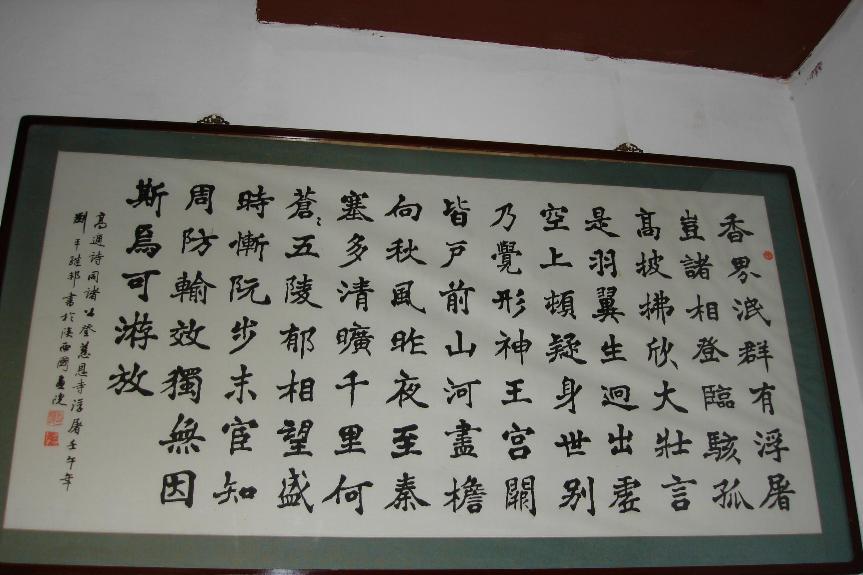 香界泯群有浮屠
豈諸相登臨駭孤
高披拂欣大壯言
是羽翼生迥出虛
空上頓疑身世别
乃覺形神王宮闕
皆戶前山河盡檐
向秋風昨夜至秦
塞多清曠千里何
蒼〻五陵郁相望盛
時慚阮步末宦知
周防輸效獨無因
斯焉可游放
高適詩同諸公登慈恩寺浮屠壬午年
邦書於陝西國畫院